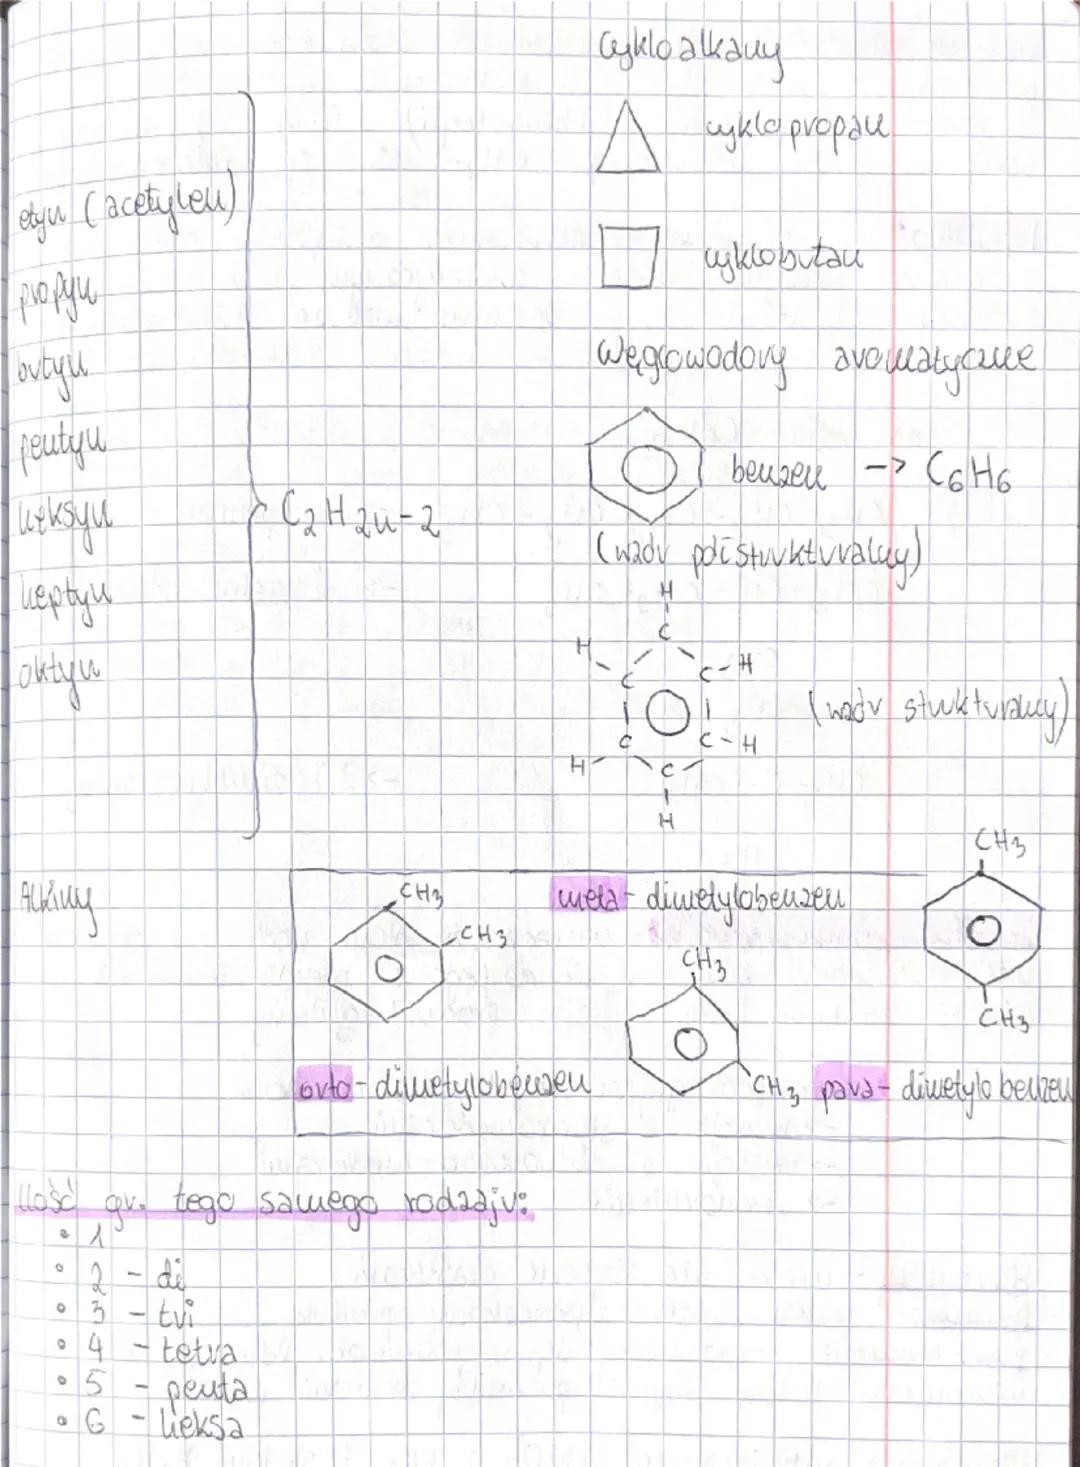 Cykloalkany
cyklopropan
etyn (acetylen)
cyklobutan
propyn
butyn
Węglowodory aromatyczne
pentyn
benzen -> C6H6
heksyn
C2H2n-2
(wzór półstrukturalny)
heptyn
H
C
H
C
C-H
oktyn
(wzór strukturalny)
C
C-H
H
C
H
CH3
Alkiny
CH3
meta-dimetylobenzen
CH3
CH3
CH3
orto-dimetylobenzen
CH3
para-dimetylobenzen
Ilość gr. tego samego rodzaju:
• 1
• 2 - di
• 3 - tri
• 4 - tetra
• 5 - penta
• 6 - heksa